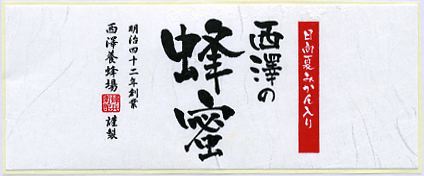 日向夏みかん入り
西澤の
蜂蜜
明治四十二年創業
西澤養蜂場
謹製